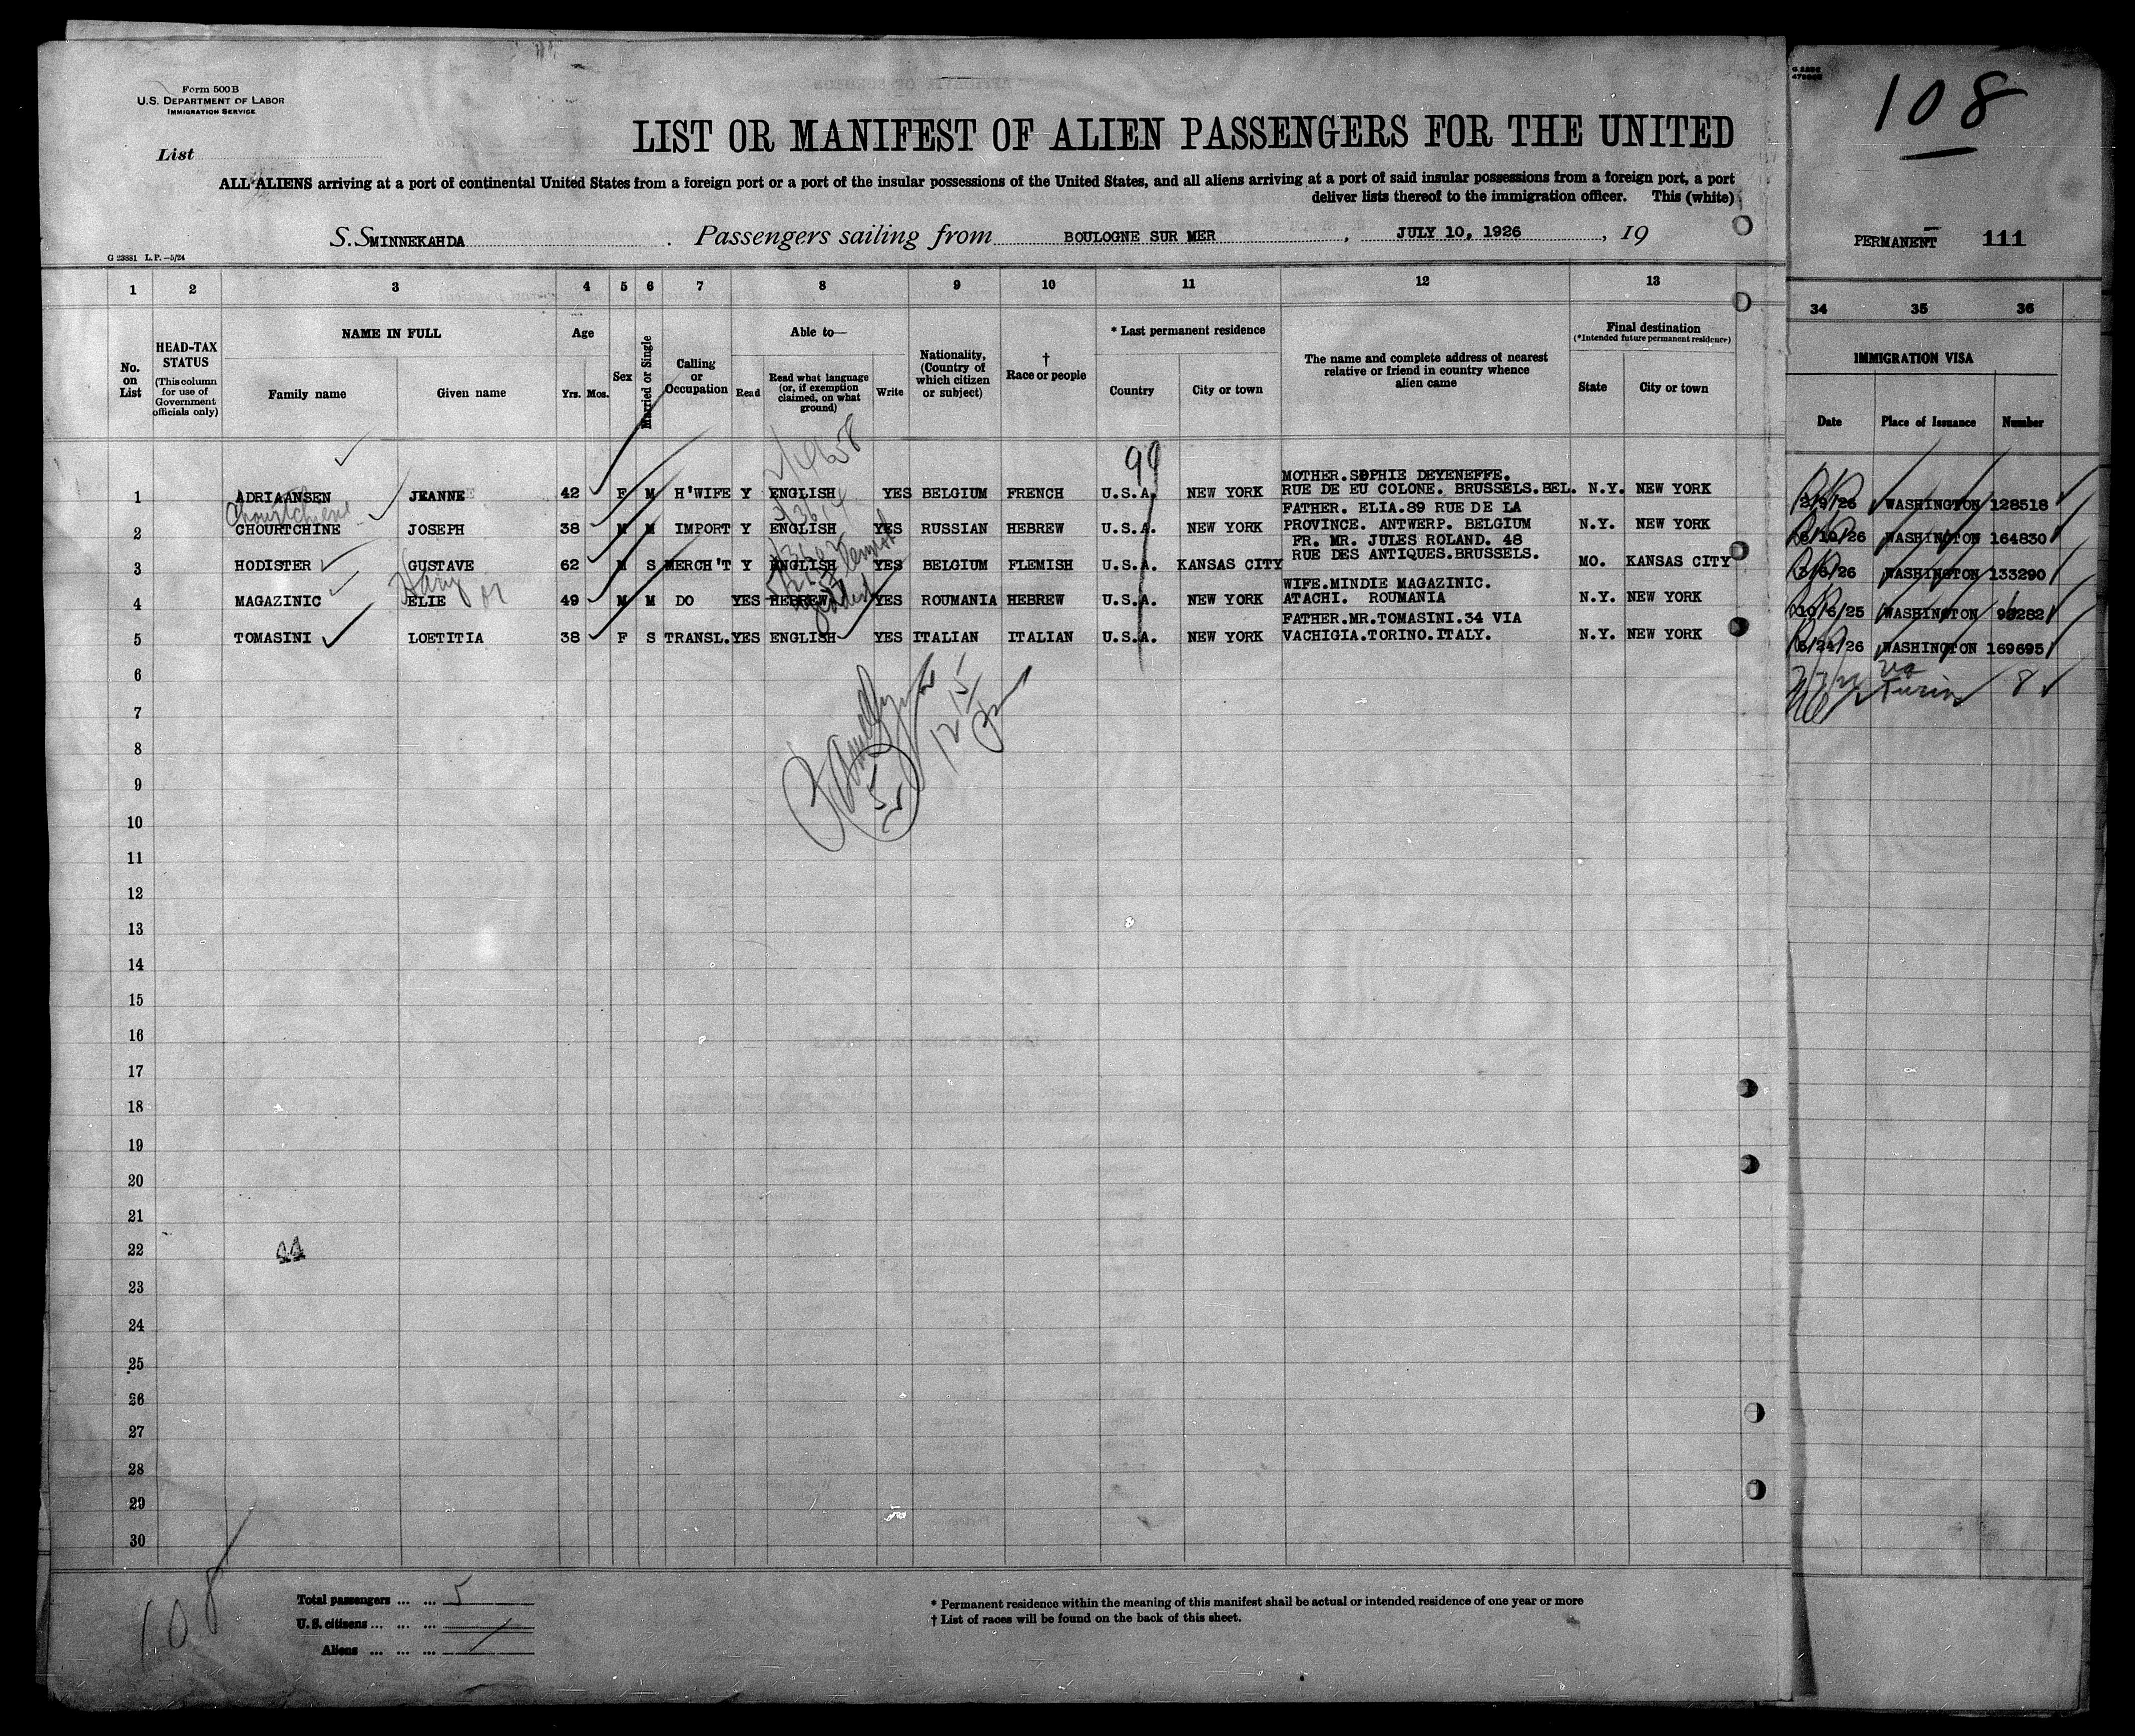 Form 500B
U.S. DEPARTMENT OF LABOR
IMMIGRATION SERVICE
List
LIST OR MANIFEST OF ALIEN PASSENGERS FOR THE UNITED
ALL ALIENS arriving at a port of continental United States from a foreign port or a port of the insular possessions of the United States, and all aliens arriving at a port of said insular possessions from a foreign port, a port
deliver lists thereof to the immigration officer. This (white)
S.S. MINNEKAHDA Passengers sailing from BOULOGNE SUR MER, JULY 10, 1926, 19
G 23881 L.P.—5/24
108
PERMANENT 111
1 2 3 4 5 6 7 8 9 10 11 12 13 34 35 36
No. on List
HEAD-TAX STATUS
(This column for use of Government officials only)
NAME IN FULL
Family name Given name
Age
Yrs. Mos.
Sex
Married or Single
Calling or Occupation
Able to—
Read
Read what language (or, if exemption claimed, on what ground)
Write
Nationality, (Country of which citizen or subject)
† Race or people
* Last permanent residence
Country City or town
The name and complete address of nearest relative or friend in country whence alien came
Final destination
(*Intended future permanent residence)
State City or town
IMMIGRATION VISA
Date Place of Issuance Number
99
MOTHER.SOPHIE DEYENEFFE.
1 ADRIAANSEN JEANNE 42 F M H'WIFE Y ENGLISH YES BELGIUM FRENCH U.S.A. NEW YORK RUE DE EU COLONE. BRUSSELS.BEL. N.Y. NEW YORK WASHINGTON 128518
Chourtchine
FATHER. ELIA.89 RUE DE LA
2 CHOURTCHINE JOSEPH 38 M M IMPORT Y ENGLISH YES RUSSIAN HEBREW U.S.A. NEW YORK PROVINCE. ANTWERP. BELGIUM N.Y. NEW YORK 6/10/26 WASHINGTON 164830
FR. MR. JULES ROLAND. 48
3 HODISTER GUSTAVE 62 M S MERCH'T Y ENGLISH YES BELGIUM FLEMISH U.S.A. KANSAS CITY RUE DES ANTIQUES.BRUSSELS. MO. KANSAS CITY WASHINGTON 133290
Harry or
WIFE.MINDIE MAGAZINIC.
4 MAGAZINIC ELIE 49 M M DO YES HEBREW YES ROUMANIA HEBREW U.S.A. NEW YORK ATACHI. ROUMANIA N.Y. NEW YORK 10/6/25 WASHINGTON
FATHER.MR.TOMASINI.34 VIA
5 TOMASINI LOETITIA 38 F S TRANSL. YES ENGLISH YES ITALIAN ITALIAN U.S.A. NEW YORK VACHIGIA.TORINO.ITALY. N.Y. NEW YORK 6/24/26 WASHINGTON 169695
6 Turin 8
7
8
9
10
11
12
13
14
15
16
17
18
19
20
21
22
23
24
25
26
27
28
29
30
108
Total passengers ... ... 5
U.S. citizens ... ... ...
Aliens ... ... ...
* Permanent residence within the meaning of this manifest shall be actual or intended residence of one year or more
† List of races will be found on the back of this sheet.